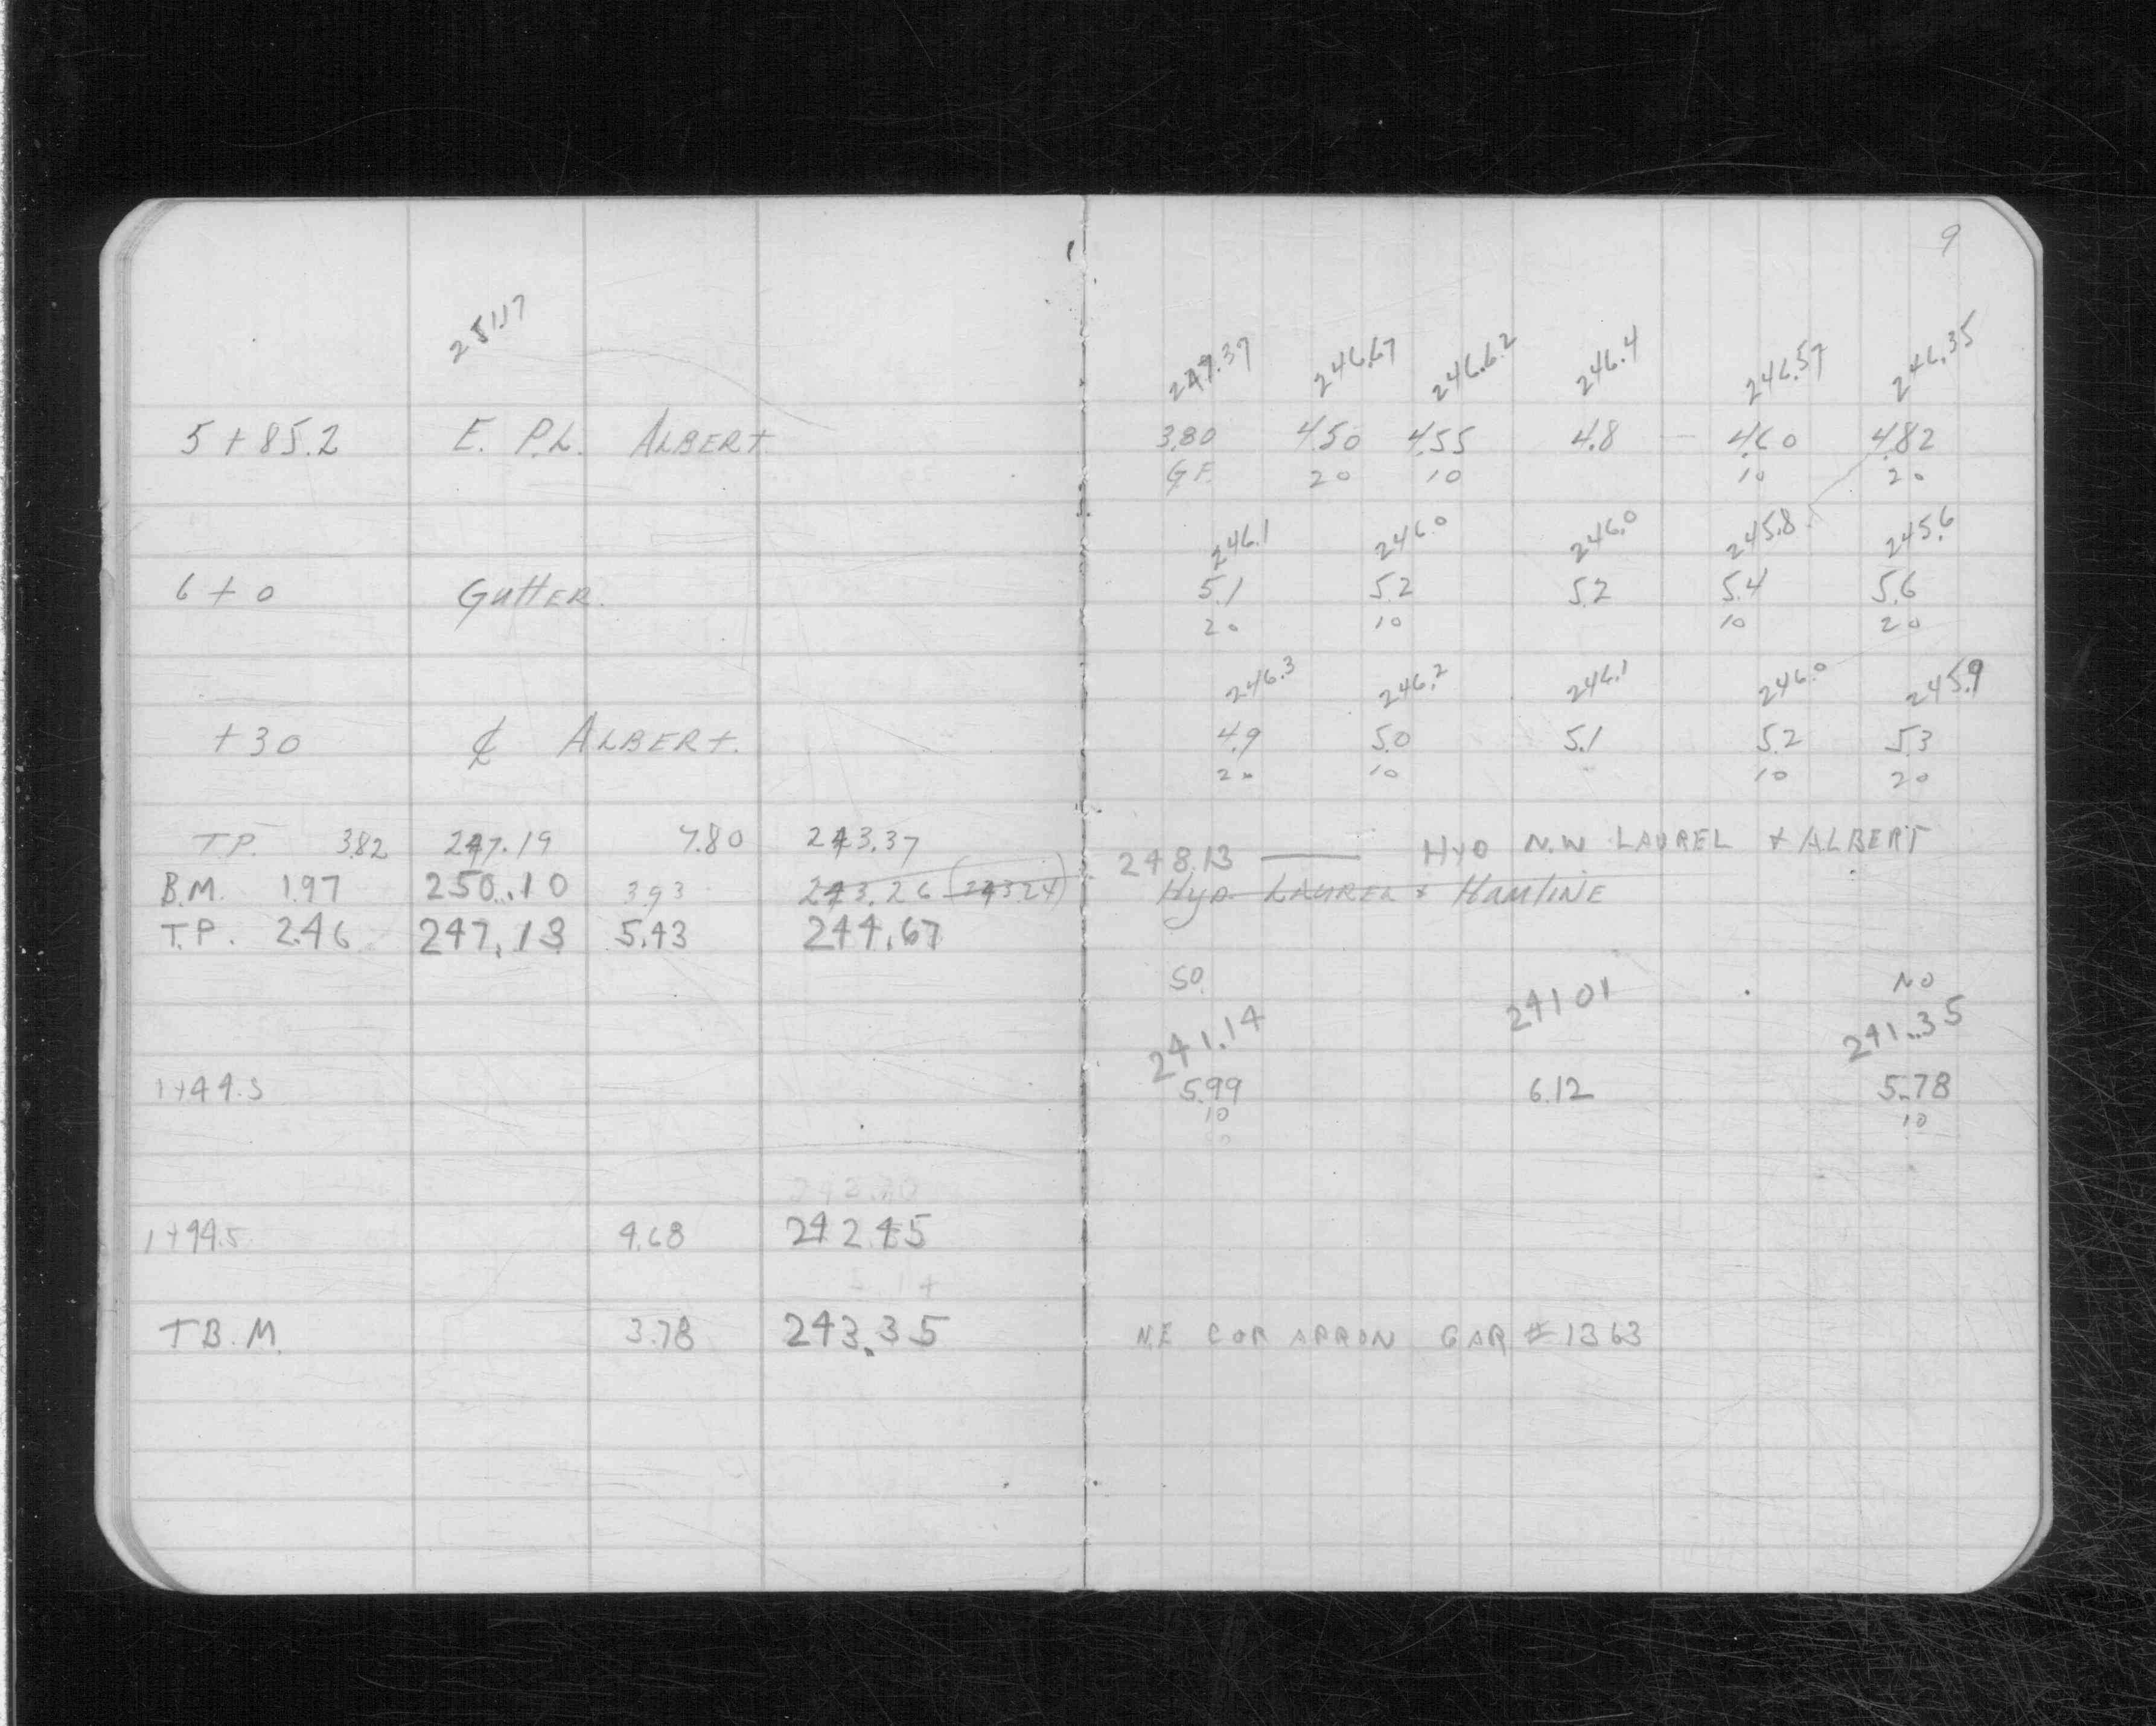 9
251.17
247.37 246.67 246.62 246.4 246.57 246.35
5+85.2 E. P.L. ALBERT 3.80 4.50 4.55 4.8 4.60 4.82
G.F. 20 10 10 20
246.1 246.0 246.0 245.8 245.6
6+0 GUTTER. 5.1 5.2 5.2 5.4 5.6
20 10 10 20
246.3 246.2 246.1 246.0 245.9
+30 ₵ ALBERT. 4.9 5.0 5.1 5.2 5.3
20 10 10 20
T.P. 3.82 247.19 7.80 243.37 248.13 — HYD N.W LAUREL & ALBERT
B.M. 1.97 250.10 3.93 243.26 (243.24) HYD. LAUREL & HAMLINE
T.P. 2.46 247.13 5.43 244.67
SO. NO
241.14 241 01 241.35
1+44.5 5.99 6.12 5.78
10 10
1+94.5 4.68 242.45
T B.M. 3.78 243.35 N.E COR APRON GAR #1363